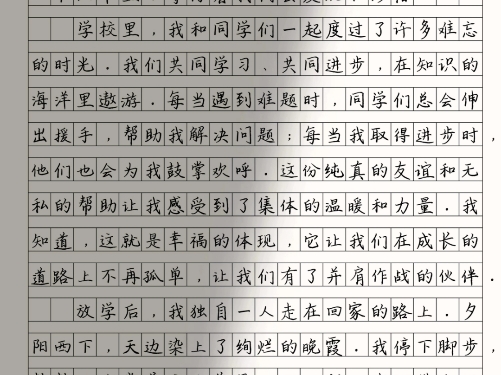 学校里，我和同学们一起度过了许多难忘
的时光．我们共同学习、共同进步，在知识的
海洋里遨游．每当遇到难题时，同学们总会伸
出援手，帮助我解决问题；每当我取得进步时，
他们也会为我鼓掌欢呼．这份纯真的友谊和无
私的帮助让我感受到了集体的温暖和力量．我
知道，这就是幸福的体现，它让我们在成长的
道路上不再孤单，让我们有了并肩作战的伙伴．
放学后，我独自一人走在回家的路上．夕
阳西下，天边染上了绚烂的晚霞．我停下脚步，